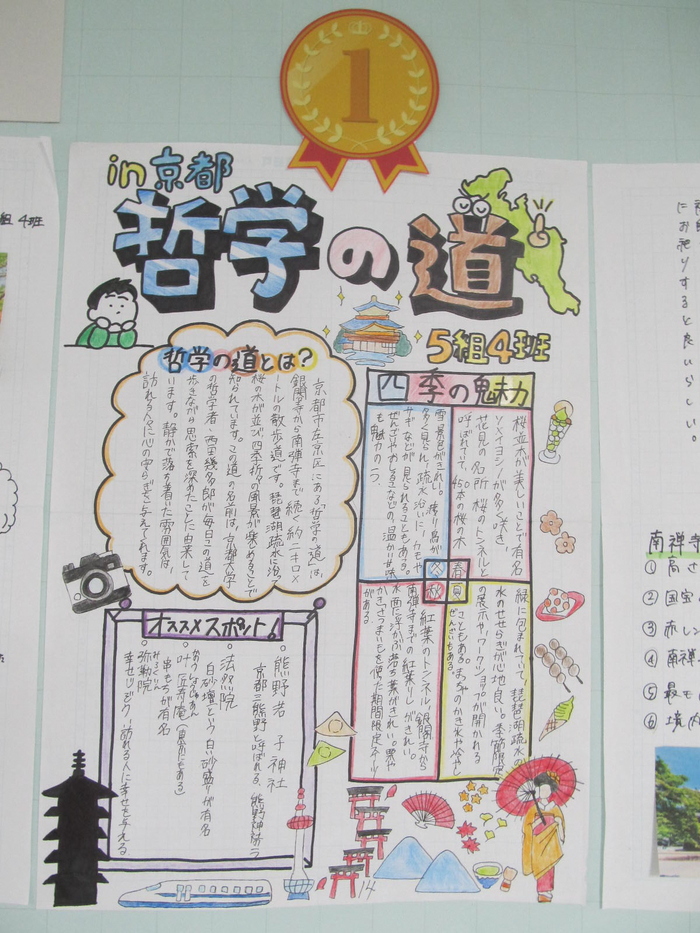 1
in京都
哲学の道
5組4班
哲学の道とは?
京都市左京区にある「哲学の道」は、
銀閣寺から南禅寺まで続く約二キロメ
ートルの散歩道です。琵琶湖疏水に沿って
桜の木が並び、四季折々の風景が楽めることで
知られています。この道の名前は、京都大学
の哲学者・西田幾多郎が毎日この道を
歩きながら思索を深めたことに由来して
います。静かで落ち着いた雰囲気は、
訪れる人々に心の中らぎを与えてくれます。
四季の魅力
桜並木が美しいことで有名
ソメイヨシノが多く咲き
花見の名所 桜のトンネルと
呼ばれていて、450本の桜の木
春
雪景色がきれい。
多く見られ、疏水沿いに
サギなどが見られることもある。
ぜんざいやおしるこなどの温かい甘味
も魅力の一つ
冬
緑に包まれていて、琵琶湖疏水の
水のせせらぎが心地良い。季節限定
の展示やワークショップが開かれる
こともある。まっちゃのかき氷や冷やし
ぜんざいもある。
夏
紅葉のトンネル、銀閣寺から
南禅寺までの紅葉がきれい。
水面に浮かぶ落ち葉がきれい。栗や
かき、さつまいもを使た期間限定スイーツ
がある
秋
オススメスポット!
・熊野若 子神社
京都三熊野と呼ばれる、熊野神社の一つ
・法然院
白砂壇という白い砂盛りが有名
・叶 匠寿庵
串もちが有名
・弥勒院
幸せ地ぞう→訪れる人に幸せを与える
14
組 4班
にお祀りすると良いらしい。
南禅寺
①高さ
②国宝
③赤レン
④南禅
⑤最も
⑥境内